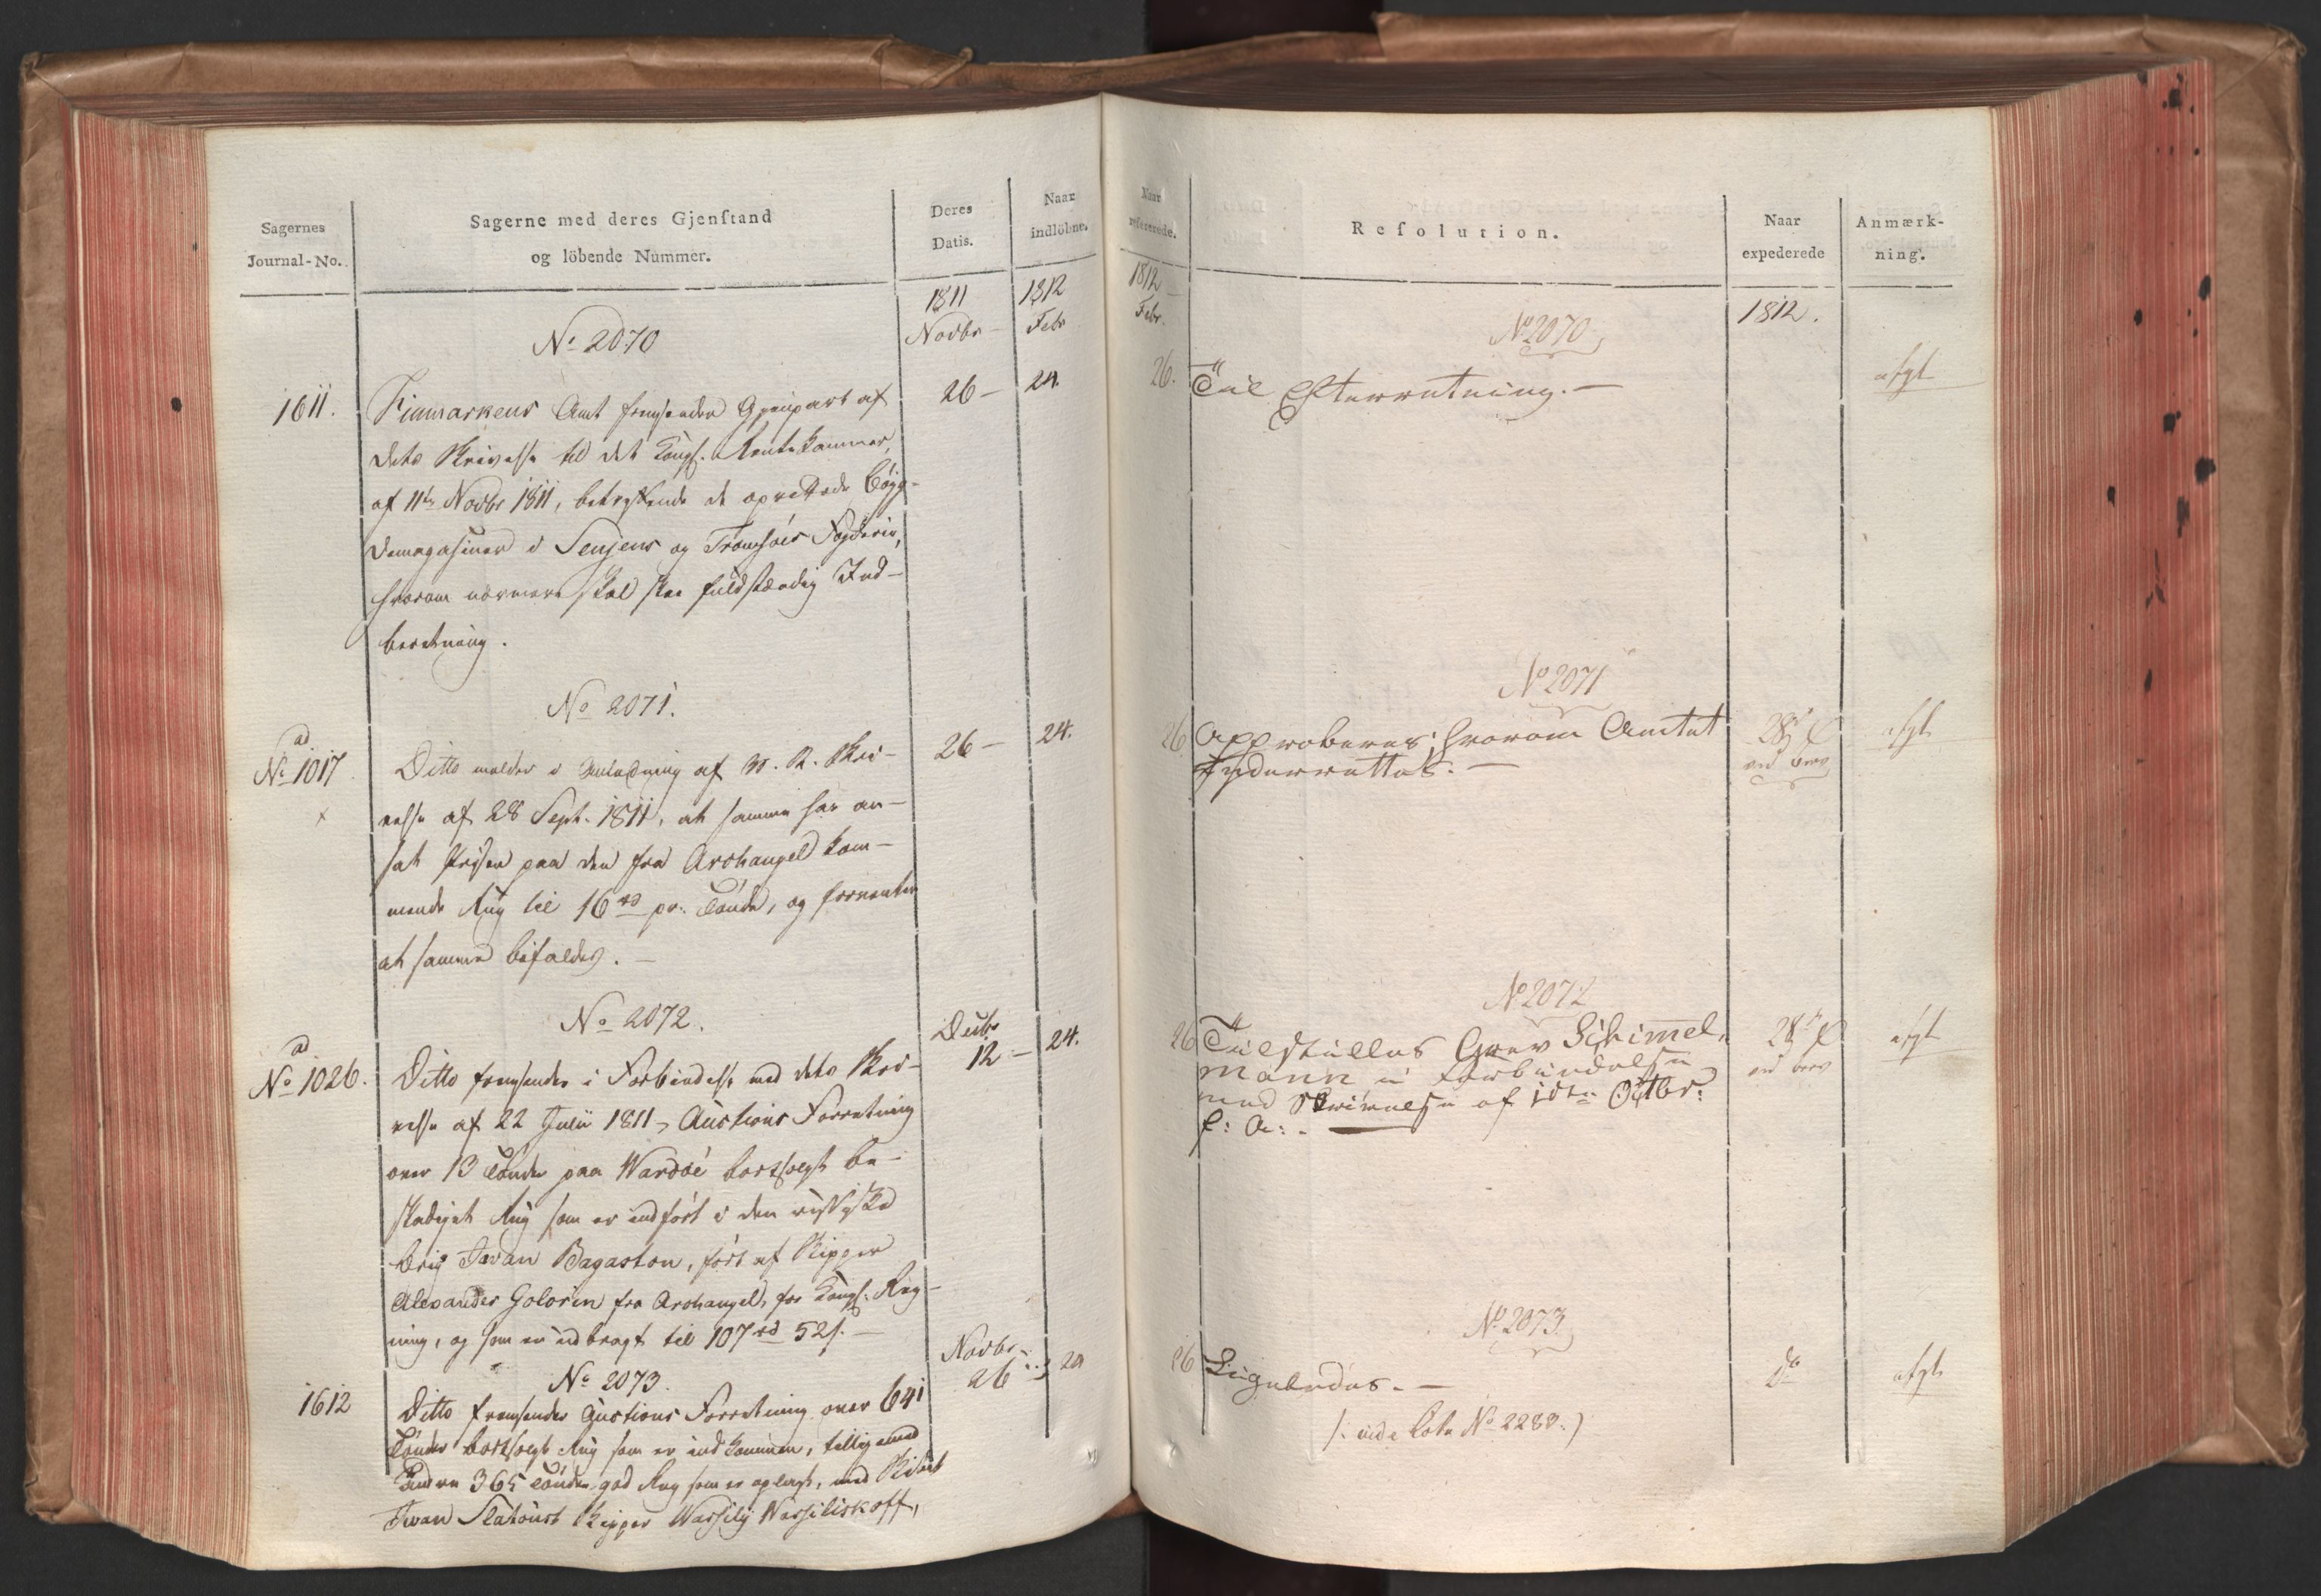 Sagernes
Journal-No.
Sagerne med deres Gjenstand
og löbende Nummer.
Deres
Datis.
Naar
indlöbne.
1811
Novbr
1812
Febr
No 2070
1611.
Finmarkens Amt fremsender Gjenpart af
dets Skrivelse til det Kongl. Rentekammer,
af 11te Novbr 1811, betreffende de oprettede Bøyg-
demagasiner i Senjens og Tromsöes Fogderie,
hvorom nærmere skal skee fuldstændig Ind-
beretning.
26 —
24.
No 2071.
ad
No 1017
Ditto melder i Anledning af W. R. Skri-
velse af 28 Sept. 1811, at samme har an-
sat Prisen paa den fra Archangel kom-
mende Rug til 16 rd pr. Tönde, og forventer
at samme bifaldes. —
26 —
24.
No 2072.
ad
No 1026.
Ditto fremsender i Forbindelse med dets Skri-
velse af 22 Julii 1811, Auctions Forretning
over 13 Tönder paa Wardöe bortsolgt be-
skadiget Rug som er indfört i den russiske
Brig Iwan Bagaston, fört af Skipper
Alexander Golorin fra Archangel, for Kongl. Reg-
ning, og som er udbragt til 107 rd 52 s. —
Decbr
12 —
24.
No 2073.
1612
Ditto fremsender Auctions Forretning over 641
Tönder bortsolgt Rug som er indkommen, tilligemed
365 Tönder god Rug som er oplagt, med Skibet
Iwan Slatoust Skipper Wassily Wassiliskoff,
Novbr
26
24
Naar
refererede.
Resolution.
Naar
expederede
Anmærk-
ning.
1812
Febr.
1812.
No 2070
26.
Til Efterretning. —
afgt
No 2071
26
Approberes; hvorom Amtet
underrettes. —
28de
ved Brev
afgt
No 2072
26
Tilstilles Grev Schimmel-
mann i Forbindelse
med Skrivelse af 15de Octbr:
f: A: —
28de
ved Brev
afgt
No 2073
26
Ligeledes. —
Do
afgt
/: vide Cota No 2288 :/